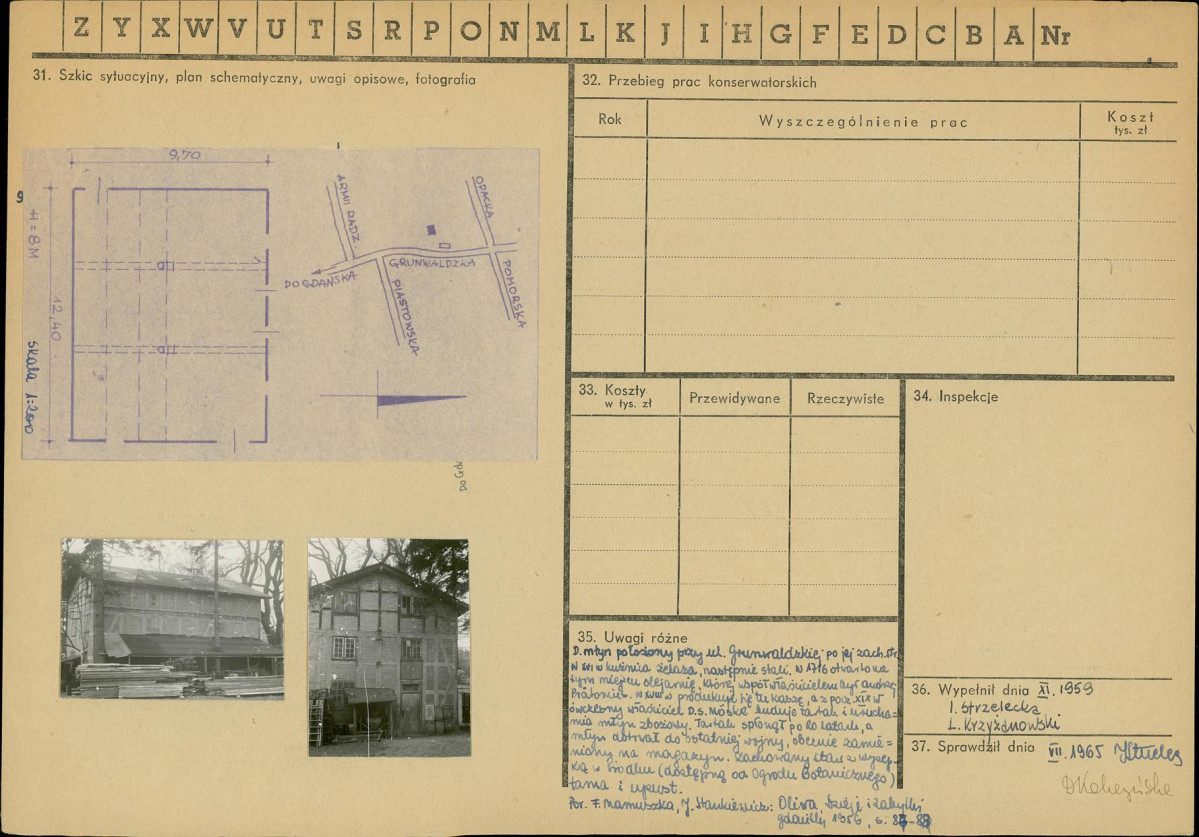 Z Y X W V U T S R P O N M L K J I H G F E D C B A Nr
31. Szkic sytuacyjny, plan schematyczny, uwagi opisowe, fotografia
9,70
H = 8 M
12,40
skala 1:200
ARMII RADZ.
OPACKA
GRUNWALDZKA
DO GDAŃSKA
PIASTOWSKA
POMORSKA
32. Przebieg prac konserwatorskich
Rok
Wyszczególnienie prac
Koszt
tys. zł
33. Koszty
w tys. zł
Przewidywane
Rzeczywiste
34. Inspekcje
35. Uwagi różne
D. młyn położony przy ul. Grunwaldzkiej po jej zach. str.
W XVI w kuźnia żelaza, następnie stali. W 1716 otwarto na
tym miejscu olejarnię, której współwłaścicielem był Andrzej
W XVIII w produkuje się tu kaszę, a z pocz. XIX w
ówczesny właściciel D.S. buduje tartak i urucha-
mia młyn zbożowy. Tartak spłonął po 20 latach, a
młyn dotrwał do ostatniej wojny, obecnie zamie=
niony na magazyn. Zachowany staw z wysep-
ką w środku (dostępną od Ogrodu Botanicznego)
tama i upust.
Por. F. Mamuszka, J. Stankiewicz: Oliwa, Dzieje i zabytki
Gdańsk 1959, s.
36. Wypełnił dnia XI. 1959
I. Strzelecka
L. Krzyżanowski
37. Sprawdził dnia VII. 1965